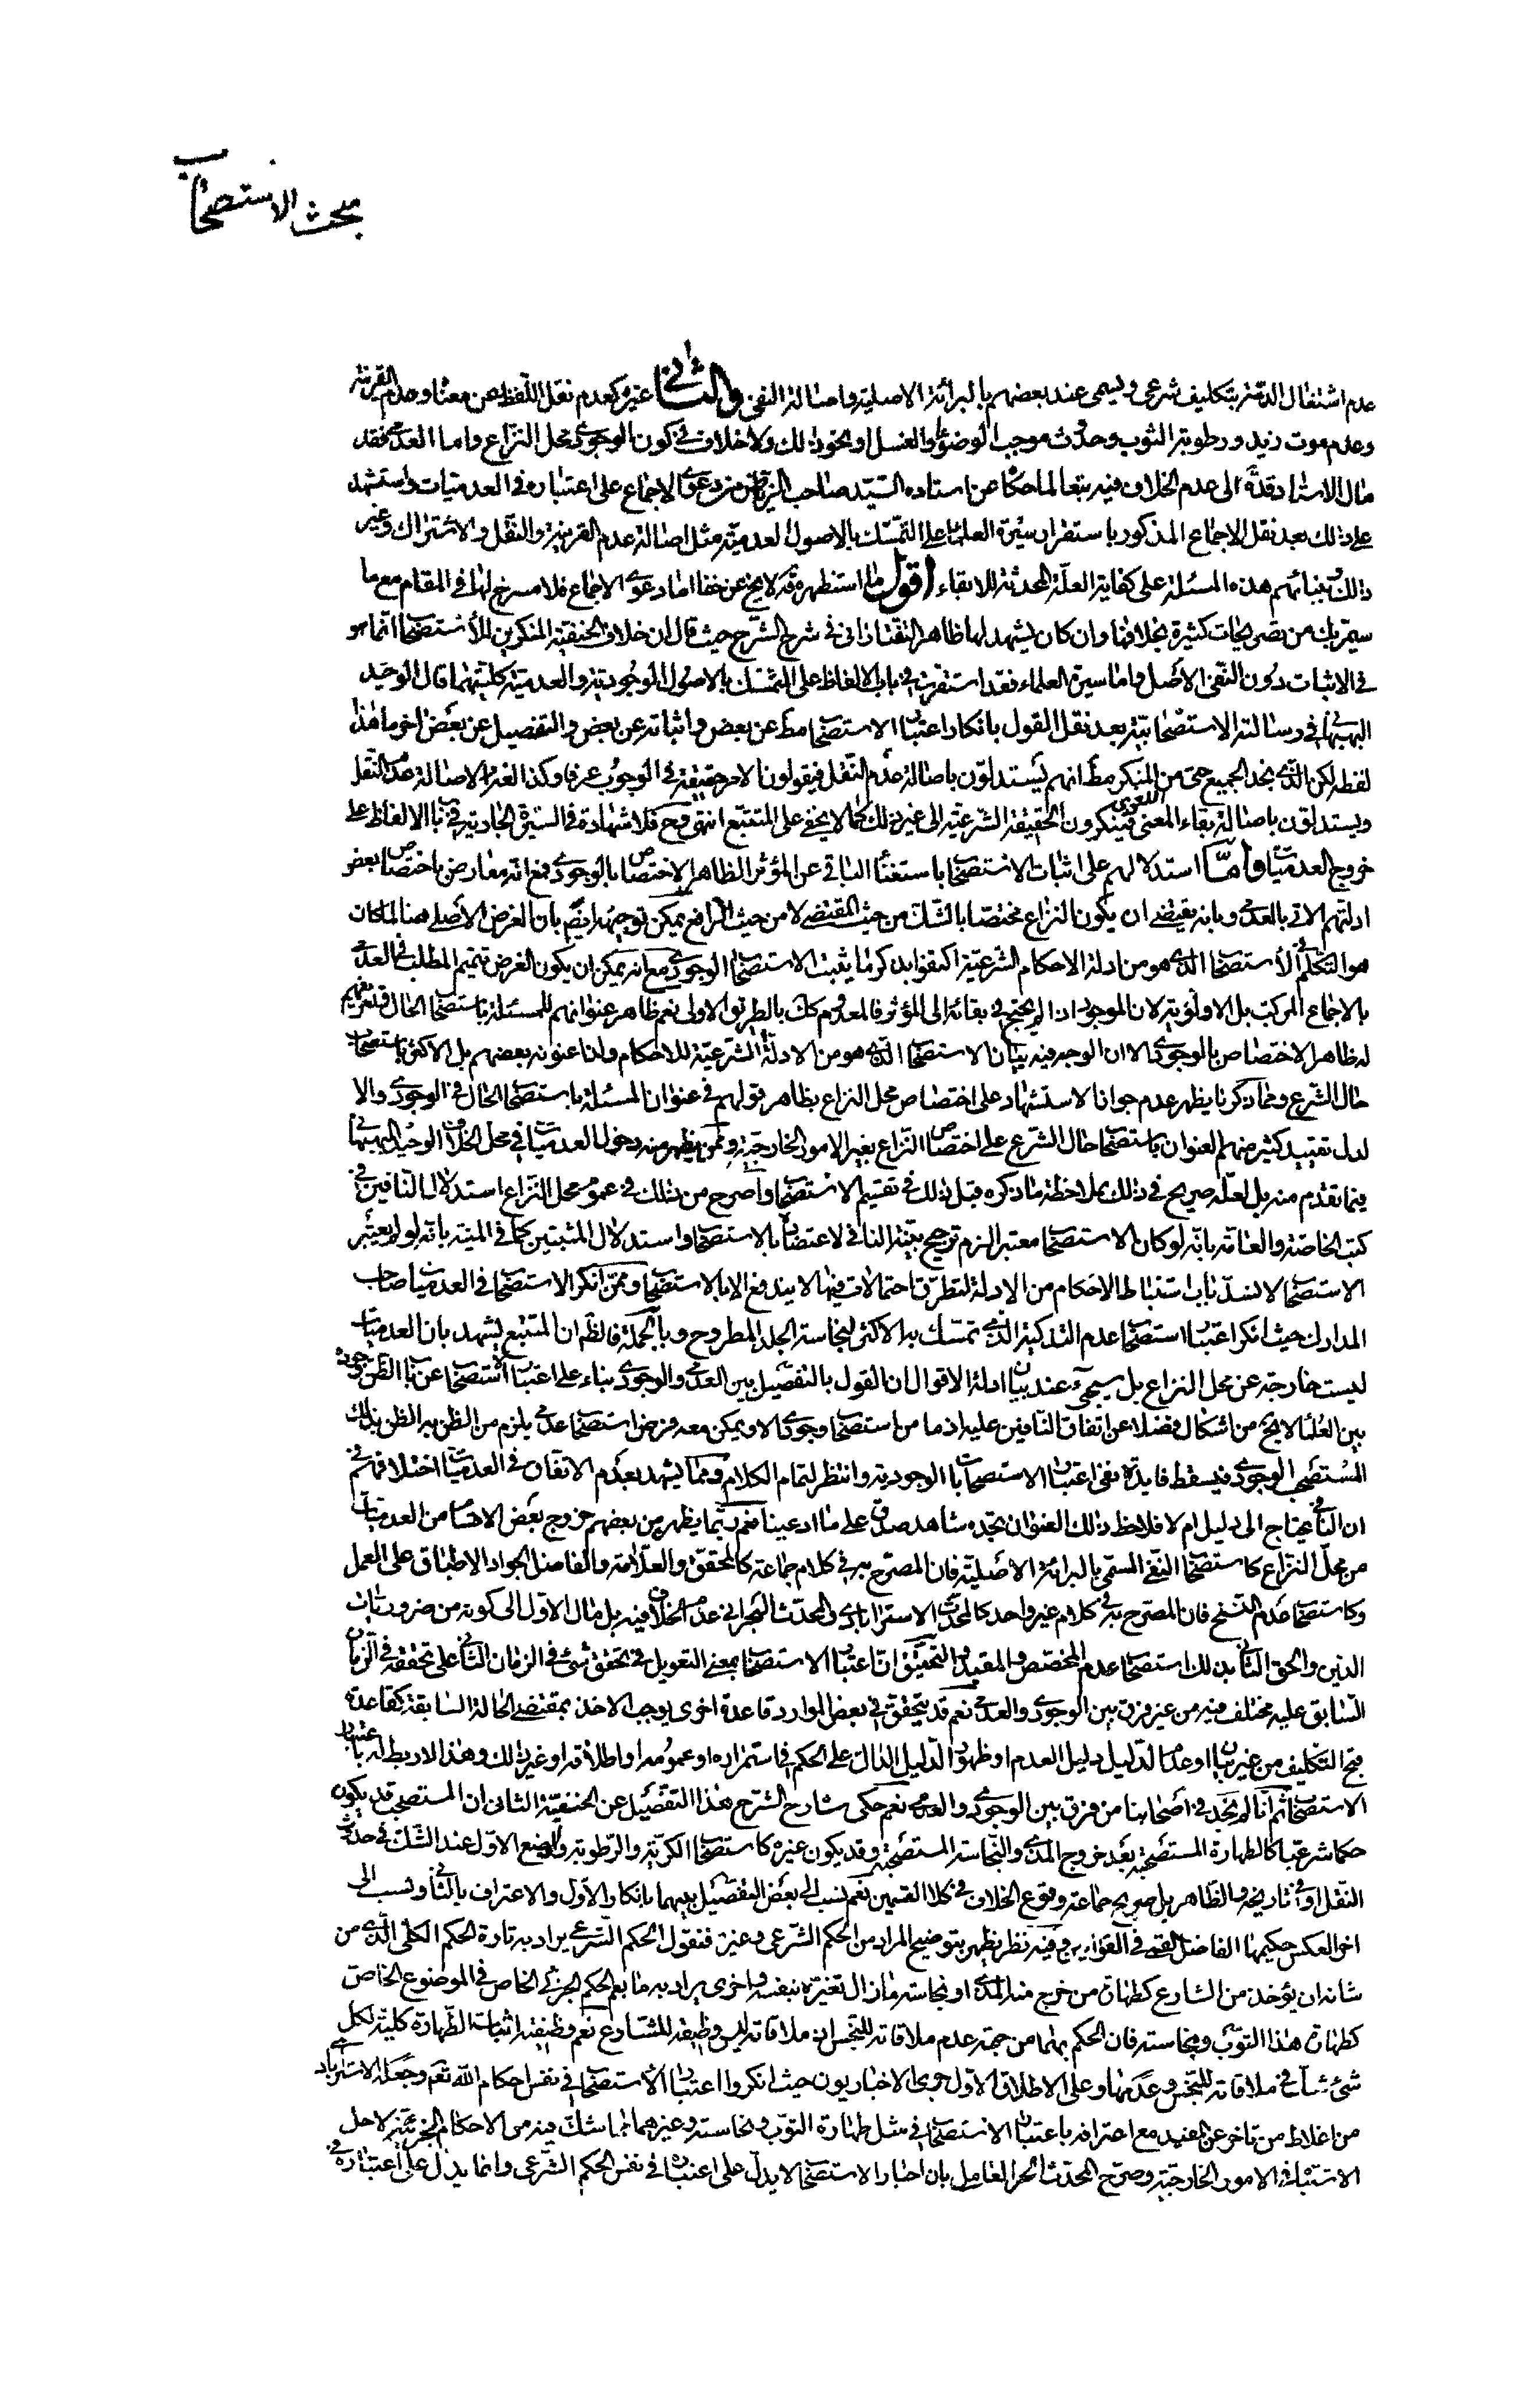 مبحث الاستصحاب
عدم اشتغال الذمة بتكليف شرعي ويسمى عند بعضهم بالبرائة الاصلية واصالة النفي والثاني غيره كعدم نقل اللفظ عن معناه وعدم القرينة
وعدم موت زيد ورطوبة الثوب وحدوث موجب الوضوء او الغسل او نحو ذلك ولا خلاف في كون الوجودي محل النزاع واما العدمي فقد
مال الاستاد قده الى عدم الخلاف فيه تبعا لما حكاه عن استاده السيد صاحب الرياض من دعوى الاجماع على اعتباره في العدميات واستشهد
على ذلك بعد نقل الاجماع المذكور باستقرار سيرة العلماء على التمسك بالاصول العدمية مثل اصالة عدم القرينة والنقل والاشتراك وغير
ذلك وببنائهم هذه المسئلة على كفاية العلة المحدثة للابقاء اقول ما استظهره قده لا يخ عن خفا اما دعوى الاجماع فلا مسرح لها في المقام مع ما
سيمر بك من تصريحات كثيرة بخلافها وان كان يشهد لها ظاهر التفتازاني في شرح الشرح حيث قال ان خلاف الحنفية المنكرين للاستصحاب انما هو
في الاثبات دون النفي الاصلي واما سيرة العلماء فقد استقرت في باب الالفاظ على التمسك بالاصول الوجودية والعدمية كلتيهما قال الوحيد
البهبهاني في رسالته الاستصحابية بعد نقل القول بانكار اعتبار الاستصحاب مط عن بعض واثباته عن بعض والتفصيل عن بعض اخر ما هذا
لفظه لكن الذي نجد الجميع حتى من المنكر مط انهم يستدلون باصالة عدم النقل فيقولون الامر حقيقة في الوجوب عرفا وكذا لغة لاصالة عدم النقل
ويستدلون باصالة بقاء المعنى اللغوي فينكرون الحقيقة الشرعية الى غير ذلك كما لا يخفى على المتتبع انتهى وح فلا شهادة في السيرة الجارية في باب الالفاظ على
خروج العدميات واما استدلالهم على اثبات الاستصحاب باستغناء الباقي عن المؤثر الظاهر الاختصاص بالوجودي فمع انه معارض باختصاص بعض
ادلتهم الاتي بالعدمي وبانه يقتضي ان يكون النزاع مختصا بالشك من حيث المقتضي لا من حيث الرافع يمكن توجيهه ايضا بان الغرض الاصلي هنا لما كان
هو التكلم في الاستصحاب الذي هو من ادلة الاحكام الشرعية اكتفوا بذكر ما يثبت الاستصحاب الوجودي مع انه يمكن ان يكون الغرض تتميم المطلب في العدمي
بالاجماع المركب بل الاولوية لان الموجود اذا لم يحتج في بقائه الى المؤثر فالمعدوم كك بالطريق الاولى نعم ظاهر عنوانهم للمسئلة باستصحاب الحال وتعريفهم
له ظاهر الاختصاص بالوجودي الا ان الوجه فيه بيان الاستصحاب الذي هو من الادلة الشرعية للاحكام ولذا عنونه بعضهم بل الاكثر باستصحاب
حال الشرع ومما ذكرنا يظهر عدم جواز الاستشهاد على اختصاص محل النزاع بظاهر قولهم في عنوان المسئلة باستصحاب الحال في الوجودي والا
لدل تقييد كثير منهم العنوان باستصحاب حال الشرع على اختصاص النزاع بغير الامور الخارجية وممن يظهر منه دخول العدميات في محل الخلاف الوحيد البهبهاني
فيما تقدم منه بل لعله صريح في ذلك بملاحظة ما ذكره قبل ذلك في تقسيم الاستصحاب واصرح من ذلك في عموم محل النزاع استدلال النافين في
كتب الخاصة والعامة بانه لو كان الاستصحاب معتبرا لزم ترجيح بينة النافي لاعتضاده بالاستصحاب واستدلال المثبتين كما في المنية بانه لو لم يعتبر
الاستصحاب لانسد باب استنباط الاحكام من الادلة لتطرق احتمالات فيها لا يندفع الا بالاستصحاب وممن انكر الاستصحاب في العدميات صاحب
المدارك حيث انكر اعتبار استصحاب عدم التذكية الذي تمسك به الاكثر لنجاسة الجلد المطروح وبالجملة فالظ ان المتتبع يشهد بان العدميات
ليست خارجة عن محل النزاع بل سيجيء عند بيان ادلة الاقوال ان القول بالتفصيل بين العدمي والوجودي بناء على اعتبار الاستصحاب من باب الظن وجوده
بين العلماء لا يخ من اشكال فضلا عن اتفاق النافين عليه اذ ما من استصحاب وجودي الا ويمكن معه فرض استصحاب عدمي يلزم من الظن به الظن بذلك
المستصحب الوجودي فيسقط فايدة نفي اعتبار الاستصحابات الوجودية وانتظر لتمام الكلام ومما يشهد بعدم الاتفاق في العدميات اختلافهم في
ان النافي يحتاج الى دليل ام لا فلاحظ ذلك العنوان تجده شاهد صدق على ما ادعيناه نعم ربما يظهر من بعضهم خروج بعض الاقسام من العدميات
من محل النزاع كاستصحاب النفي المسمى بالبرائة الاصلية فان المصرح به في كلام جماعة كالمحقق والعلامة والفاضل الجواد الاطباق على العمل
وكاستصحاب عدم النسخ فان المصرح به في كلام غير واحد كالمحدث الاسترابادي والمحدث البحراني عدم الخلاف فيه بل مال الاول الى كونه من ضروريات
الدين والحق الثاني بذلك استصحاب عدم المخصص والمقيد والتحقيق ان اعتبار الاستصحاب بمعنى التعويل في تحقق شيء في الزمان الثاني على تحققه في الزمان
السابق عليه مختلف فيه من غير فرق بين الوجودي والعدمي نعم قد يتحقق في بعض الموارد قاعدة اخرى يوجب الاخذ بمقتضى الحالة السابقة كقاعدة
قبح التكليف من غير بيان او عدم الدليل دليل العدم او ظهور الدليل الدال على الحكم في استمراره او عمومه او اطلاقه او غير ذلك وهذا لا ربط له باعتبار
الاستصحاب ثم انا لم نجد في اصحابنا من فرق بين الوجودي والعدمي نعم حكى شارح الشرح هذا التفصيل عن الحنفية الثاني ان المستصحب قد يكون
حكما شرعيا كالطهارة المستصحبة بعد خروج المذي والنجاسة المستصحبة وقد يكون غيره كاستصحاب الكرية والرطوبة والوضع الاول عند الشك في حدوث
النقل او في تاريخه والظاهر بل صريح جماعة وقوع الخلاف في كلا القسمين نعم نسب الى بعض التفصيل بينهما بانكار الاول والاعتراف بالثاني ونسب الى
اخر العكس حكيهما الفاضل القمي في القوانين وفيه نظر يظهر بتوضيح المراد من الحكم الشرعي وغيره فنقول الحكم الشرعي يراد به تارة الحكم الكلي الذي من
شانه ان يؤخذ من الشارع كطهارة من خرج منه المذي او نجاسة ما زال تغيره بنفسه واخرى يراد به ما يعم الحكم الجزئي الخاص في الموضوع الخاص
كطهارة هذا الثوب ونجاسته فان الحكم بهما من جهة عدم ملاقاته للنجس او ملاقاته ليس وظيفة للشارع نعم وظيفته اثبات الطهارة كلية لكل
شيء شك في ملاقاته للنجس وعدمها وعلى الاطلاق الاول جرى الاخباريون حيث انكروا اعتبار الاستصحاب في نفس احكام الله تعم وجعله الاسترابادي
من اغلاط من تاخر عن المفيد مع اعترافه باعتبار الاستصحاب في مثل طهارة الثوب ونجاسته وغيرهما مما شك فيه من الاحكام الجزئية لاجل
الاشتباه في الامور الخارجية وصرح المحدث الحر العاملي بان اخبار الاستصحاب لا يدل على اعتباره في نفس الحكم الشرعي وانما يدل على اعتباره في